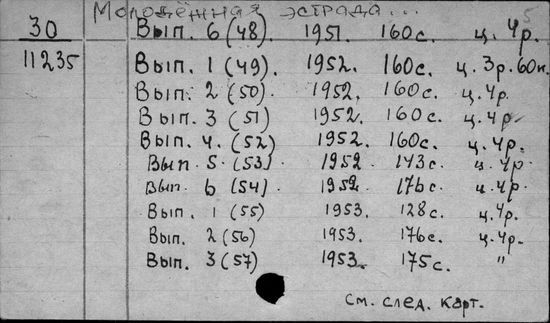 Молодёжная эстрада... 5
30 Вып. 6 (48). 1951. 160 с. ц. 4р.
11235 Вып. 1 (49). 1952. 160 с. ц. 3р. 60к.
Вып. 2 (50). 1952. 160 с. ц. 4р.
Вып. 3 (51) 1952. 160 с. ц. 4р.
Вып. 4. (52) 1952. 160 с. ц. 4р.
Вып. 5. (53). 1952 143 с. ц. 4р.
Вып. 6 (54). 1952 176 с. ц. 4р.
Вып. 1 (55) 1953. 128 с. ц. 4р.
Вып. 2 (56) 1953. 176 с. ц. 4р.
Вып. 3 (57) 1953. 175 с. "
См. след. карт.